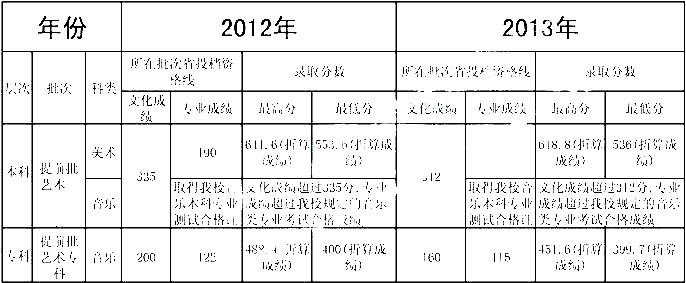 年份 2012年 2013年
所在批次省投档资格线 录取分数 所在批次省投档资格线 录取分数
层次 批次 科类
文化成绩 专业成绩 最高分 最低分 文化成绩 专业成绩 最高分 最低分
本科 提前批艺术 美术 335 190 611.6(折算成绩) 553.6(折算成绩) 312 618.8(折算成绩) 536(折算成绩)
音乐 取得我校音乐本科专业测试合格证 文化成绩超过335分,专业成绩超过我校规定的音乐类专业考试合格成绩 取得我校音乐本科专业测试合格证 文化成绩超过312分,专业成绩超过我校规定的音乐类专业考试合格成绩
专科 提前批艺术专科 音乐 200 (折算成绩) 400(折算成绩) 160 115 451.6(折算成绩) 399.7(折算成绩)